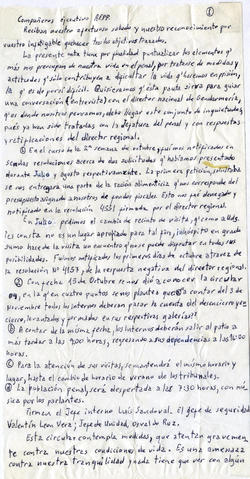 ①
Compañeros ejecutivo AFPP.
Reciban nuestro afectuoso saludo y nuestro reconocimiento por
vuestro infatigable quehacer tras los objetivos trazados.
La presente nota tiene por finalidad puntualizar los elementos q'
más nos preocupan de nuestra vida en el penal, por tratarse de medidas y
actitudes q' sólo contribuyen a dificultar la vida q' hacemos en prisión,
la q' es de por sí difícil. Quisiéramos q' esta pauta sirva para guiar
una conversación (entrevista) con el director nacional de Gendarmería,
q' es donde nosotros pensamos, debe llegar este conjunto de inquietudes,
pués ya han sido tratadas con la Jefatura del penal y con respuestas
y ratificaciones del director regional.
En el curso de la 2ª semana de octubre, fuimos notificados en
sendas resoluciones acerca de dos solicitudes q' habíamos presentado
durante Julio y agosto respectivamente. La primera petición, solicitaba
se nos entregara una parte de la ración alimenticia q' nos corresponde del
presupuesto asignado a nosotros de fuentes fiscales. Esto nos fué denegado y
notificado en la resolución firmada por el director regional.
En Julio pedimos el cambio de recinto de visita, q' como a Uds.
les consta no es un lugar apropiado para tal fin,
sumo hace de la visita un encuentro q' no se puede disfrutar en todas sus
posibilidades. Fuimos notificados los primeros días de octubre através de
la resolución Nº 4153, de la respuesta negativa del director regional.
Con fecha 13 de Octubre se nos dió a conocer la circular
en la q' en cuatro puntos se nos plantea q' a contar del 3 de
Noviembre todos los internos deberán pasar la cuenta del desencierro y en-
cierro, levantados y formados en sus respectivas galerías!
b) A contar de la misma fecha, los internos deberán salir al patio a
más tardar a las 9:00 horas, regresando a sus dependencias a las 16:00
horas.
c) Para la atención de sus visitas, se mantendrá el mismo horario y
lugar, hasta el cambio de horario de verano de los tribunales.
d) La población penal, será despertada a las 7:30 horas, con mú-
sica por los parlantes.
Firman el Jefe interno Luis Sandoval. El jefe de seguridad
Valentín Leon Vera; Jefe de Unidad, Osval do Roz.
Esta circular contempla medidas, que atentan gravemen-
te contra nuestras condiciones de vida. Es una amenaza
contra nuestra tranquilidad y nada tiene que ver con algún